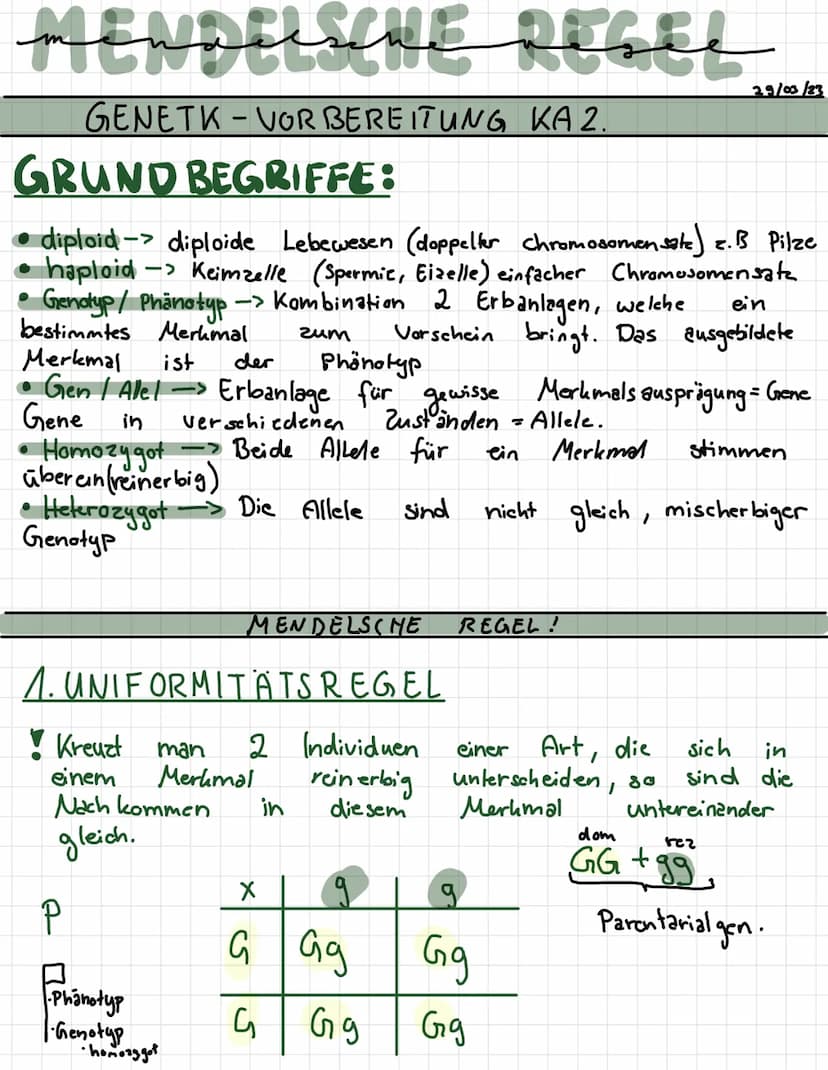 MENDELSCHE REGEL
mendelsche Regel
29/03/23
GENETK - VORBEREITUNG KA 2.
GRUNDBEGRIFFE:
• diploid -> diploide Lebewesen (doppelter Chromosomensatz) z.B Pilze
• haploid -> Keimzelle (Spermie, Eizelle) einfacher Chromosomensatz
• Genotyp / Phänotyp -> Kombination 2 Erbanlagen, welche ein
bestimmtes Merkmal zum Vorschein bringt. Das ausgebildete
Merkmal ist der Phänotyp
• Gen / Allel -> Erbanlage für gewisse Merkmalsausprägung = Gene
Gene in verschiedenen Zuständen = Allele.
• Homozygot -> Beide Allele für ein Merkmal stimmen
überein (reinerbig)
• Heterozygot -> Die Allele sind nicht gleich, mischerbiger
Genotyp
MENDELSCHE REGEL!
1. UNIFORMITÄTSREGEL
! Kreuzt man 2 Individuen einer Art, die sich in
einem Merkmal reinerbig unterscheiden, so sind die
Nachkommen in diesem Merkmal untereinander
gleich.
dom rez
GG + gg
Parentarialgen.
P
x g g
G Gg Gg
G Gg Gg
· Phänotyp
· Genotyp
· homozygot